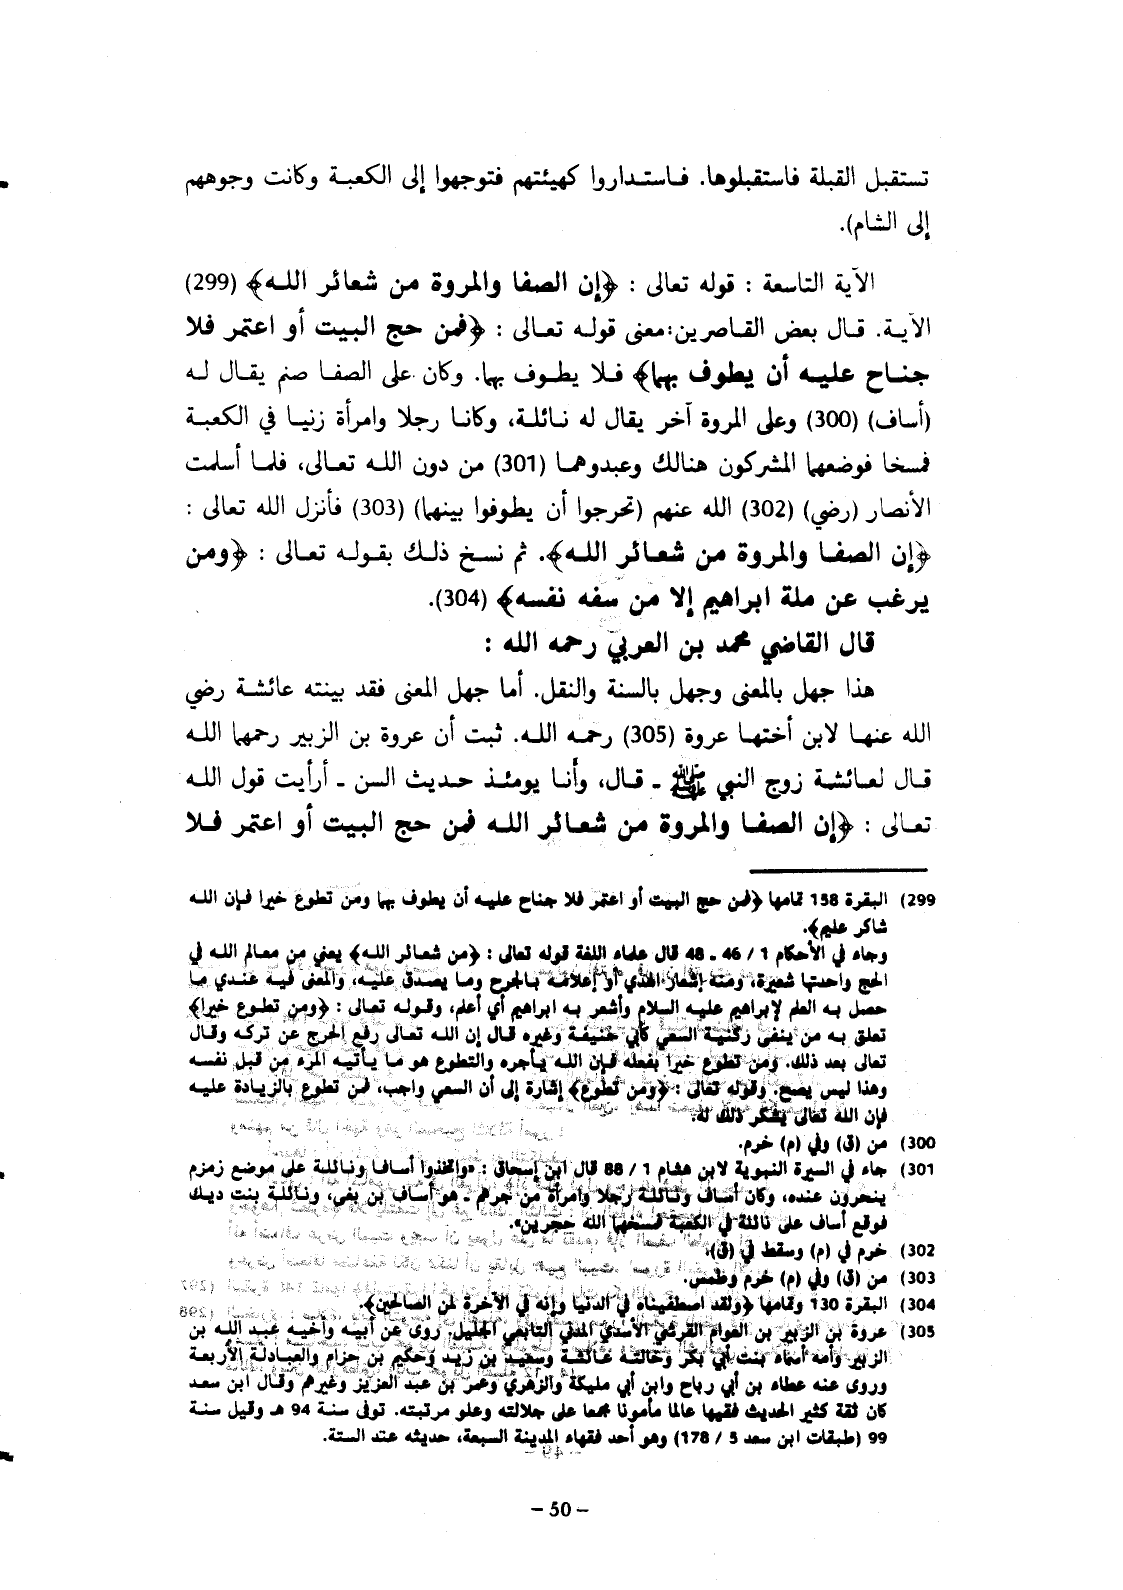 تستقبل القبلة فاستقبلوها. فاستداروا كهيئتهم فتوجهوا إلى الكعبة وكانت وجوههم
إلى الشام).
الآية التاسعة : قوله تعالى : ﴿إن الصفا والمروة من شعائر الله﴾ (299)
الآية. قال بعض القاصرين:معنى قوله تعالى : ﴿فمن حج البيت أو اعتمر فلا
جناح عليه أن يطوف بهما﴾ فلا يطوف بها. وكان على الصفا صنم يقال له
(أساف) (300) وعلى المروة آخر يقال له نائلة، وكانا رجلا وامرأة زنيا في الكعبة
فمسخا فوضعهما المشركون هنالك وعبدوهما (301) من دون الله تعالى، فلما أسلمت
الأنصار (رضي) (302) الله عنهم (تحرجوا أن يطوفوا بينهما) (303) فأنزل الله تعالى :
﴿إن الصفا والمروة من شعائر الله﴾. ثم نسخ ذلك بقوله تعالى : ﴿ومن
يرغب عن ملة ابراهيم إلا من سفه نفسه﴾ (304).
قال القاضي محمد بن العربي رحمه الله :
هذا جهل بالمعنى وجهل بالسنة والنقل. أما جهل المعنى فقد بينته عائشة رضي
الله عنها لابن أختها عروة (305) رحمه الله. ثبت أن عروة بن الزبير رحمها الله
قال لعائشة زوج النبي ﷺ ـ قال، وأنا يومئذ حديث السن ـ أرأيت قول الله
تعالى : ﴿إن الصفا والمروة من شعائر الله فمن حج البيت أو اعتمر فلا
299) البقرة 158 تمامها ﴿فمن حج البيت أو اعتمر فلا جناح عليه أن يطوف بهما ومن تطوع خيرا فإن الله
شاكر عليم﴾.
وجاء في الأحكام 1 / 46 ـ 48 قال علماء اللغة قوله تعالى : ﴿من شعائر الله﴾ يعني من معالم الله في
الحج واحدتها شعيرة، ومنه إشعار الهدي أو إعلامه بالجرح وما يصدق عليه، والمعنى فيه عندي ما
حصل به العلم لإبراهيم عليه السلام وأشعر به ابراهيم أي أعلم، وقوله تعالى : ﴿ومن تطوع خيرا﴾
تعلق به من ينفى ركنية السعي كأبي حنيفة وغيره قال إن الله تعالى رفع الحرج عن تركه وقال
تعالى بعد ذلك. ومن تطوع خيرا بفعله فإن الله يأجره والتطوع هو ما يأتيه المرء من قبل نفسه
وهذا ليس يصح. وقوله تعالى : ﴿ومن تطوع﴾ إشارة إلى أن السعي واجب، فمن تطوع بالزيادة عليه
فإن الله تعالى يشكر ذلك له.
300) من (ق) وفي (م) خرم.
301) جاء في السيرة النبوية لابن هشام 1 / 88 قال ابن إسحاق : «واتخذوا أسافا ونائلة على موضع زمزم
ينحرون عنده، وكان أساف ونائلة رجلا وامرأة من جرهم ـ هو أساف بن بغي، ونائلة بنت ديك
فوقع أساف على نائلة في الكعبة فمسخهما الله حجرين».
302) خرم في (م) وسقط في (ق).
303) من (ق) وفي (م) خرم وطمس.
304) البقرة 130 وتمامها ﴿ولقد اصطفيناه في الدنيا وإنه في الآخرة لمن الصالحين﴾.
305) عروة بن الزبير بن العوام القرشي الأسدي المدني التابعي الجليل. روى عن أبيه وأخيه عبد الله بن
الزبير وأمه أسماء بنت أبي بكر وخالته عائشة وسعيد بن زيد وحكيم بن حزام والعبادلة الأربعة
وروى عنه عطاء بن أبي رباح وابن أبي مليكة والزهري وعمر بن عبد العزيز وغيرهم وقال ابن سعد
كان ثقة كثير الحديث فقيها عالما مأمونا مجمعا على جلالته وعلو مرتبته. توفى سنة 94 هـ وقيل سنة
99 (طبقات ابن سعد 5 / 178) وهو أحد فقهاء المدينة السبعة، حديثه عند الستة.
– 50 –